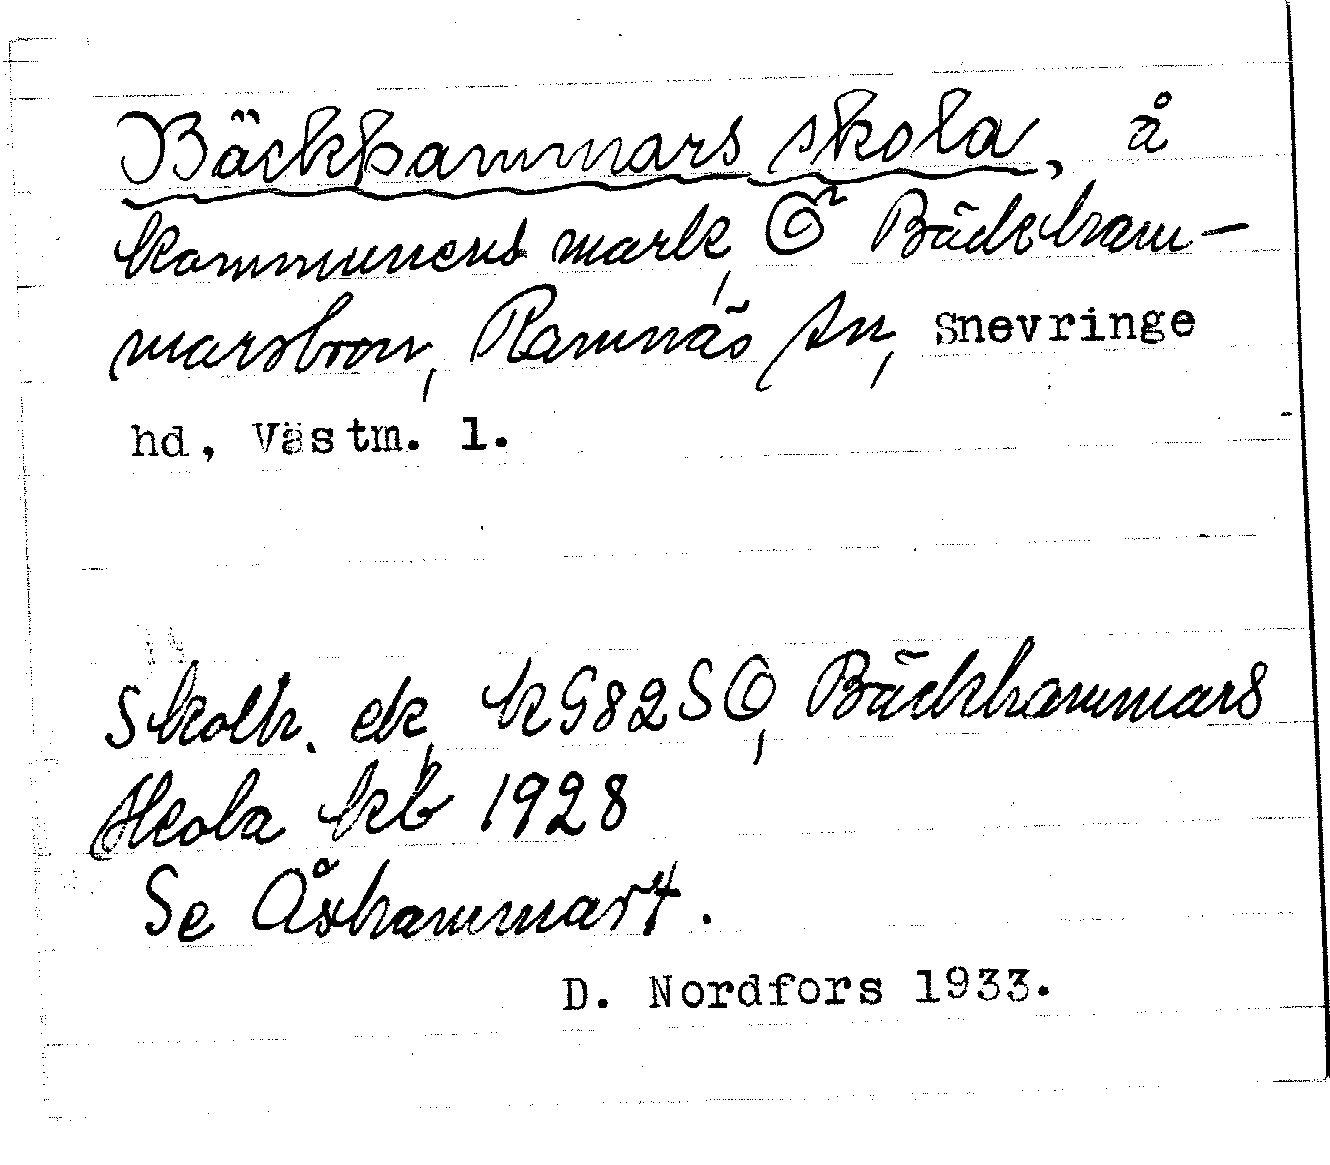 Bäckhammars skola, å
kommunens mark, Ö Bäckham-
marsbron, Ramnäs sn, Snevringe
hd, Västm. l.
Skolh. ek, k G82SO, Bäckhammars
skola kb 1928
Se Åshammart.
D. Nordfors 1933.